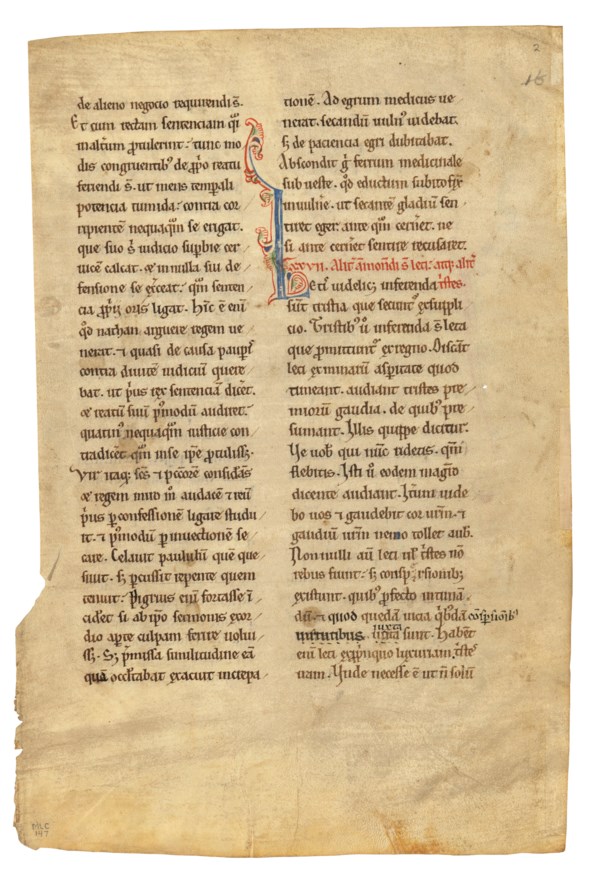 2
16
de alieno negocio requirendi s̄.
Et cum rectam sentenciam q̄si
in alterum protulerint: tunc mo
dis congruentibꝰ de ꝓpo reatu
feriendi s̄. ut mens temporali
potencia tumida: contra cor
ripientē nequaquā se erigat.
que suo s̄ iudicio supbie cer
uicē calcat. ⁊ in nulla sui de
fensione se exerceat: quā senten
cia ꝓprii oris ligat. Hīc ē enī
qd̄ nathan arguere regem ue
nerat. ⁊ quasi de causa pauꝑis
contra diuitē iudiciū quere
bat. ut prius rex sentenciā diceret.
⁊ reatū suū p̄modū audiret.
quatinꝰ nequaquā iusticie con
tradiceret quā in se ip̄e protulissꝫ.
Vir itaqꝫ sc̄s ⁊ peccatorē considerās
⁊ regem miro m̄ audacē ⁊ reū
prius ꝑ confessionē ligare studu
it. ⁊ p̄modū ꝑ inuectionē se
care. Celauit paululū quē que
siuit. sꝫ percussit repente quem
tenuit. Pigrius enī fortasse ī
cideret si ab ip̄o sermonis exor
dio aperte culpam ferire uolui
ssꝫ. Sꝫ p̄missa similitudine eā
quā occultabat exacuit increpa
tionē. Ad egrum medicus ue
nerat. secandū uulnꝰ uidebat.
sꝫ de paciencia egri dubitabat.
Abscondit g̊ ferrum medicinale
sub ueste. qd̄ eductum subito fixit
in uulnere. ut secantē gladiū sen
tiret eger ante quā cerneret. ne
si ante cerneret sentire recusaret.
XXVII. Alit̄ ammonēdi s̄ leti: atqꝫ alit̄
Leti uidelicꝫ inferenda tristes.
sūt tristia que secunt̄ ex suppli
cio. Tristibꝰ ū inferenda s̄ leta
que promittunt̄ ex regno. Discāt
leti ex minarū asperitate quod
timeant. audiant tristes pre
miorū gaudia. de quibꝰ pre
sumant. Illis quippe dicitur.
Ve uobis qui nūc ridetis. qm̄
flebitis. Isti ū eodem magr̄o
dicente audiant. Iterum uide
bo uos ⁊ gaudebit cor ur̄m. ⁊
gaudiū ur̄m nemo tollet a uob̄.
Non nulli aū leti uł tristes nō
rebus fiunt: sꝫ conspersionibꝫ
existunt. quibꝰ ꝓfecto intimā
dū ē quod quedā uicia qͥbꝰdā conspersionibꝰ
uirtutibus iuxta sunt. Habent
enī leti ex propinquo luxuriam. tristes
iram. Vnde necesse ē ut n̄ solū
MLC
147